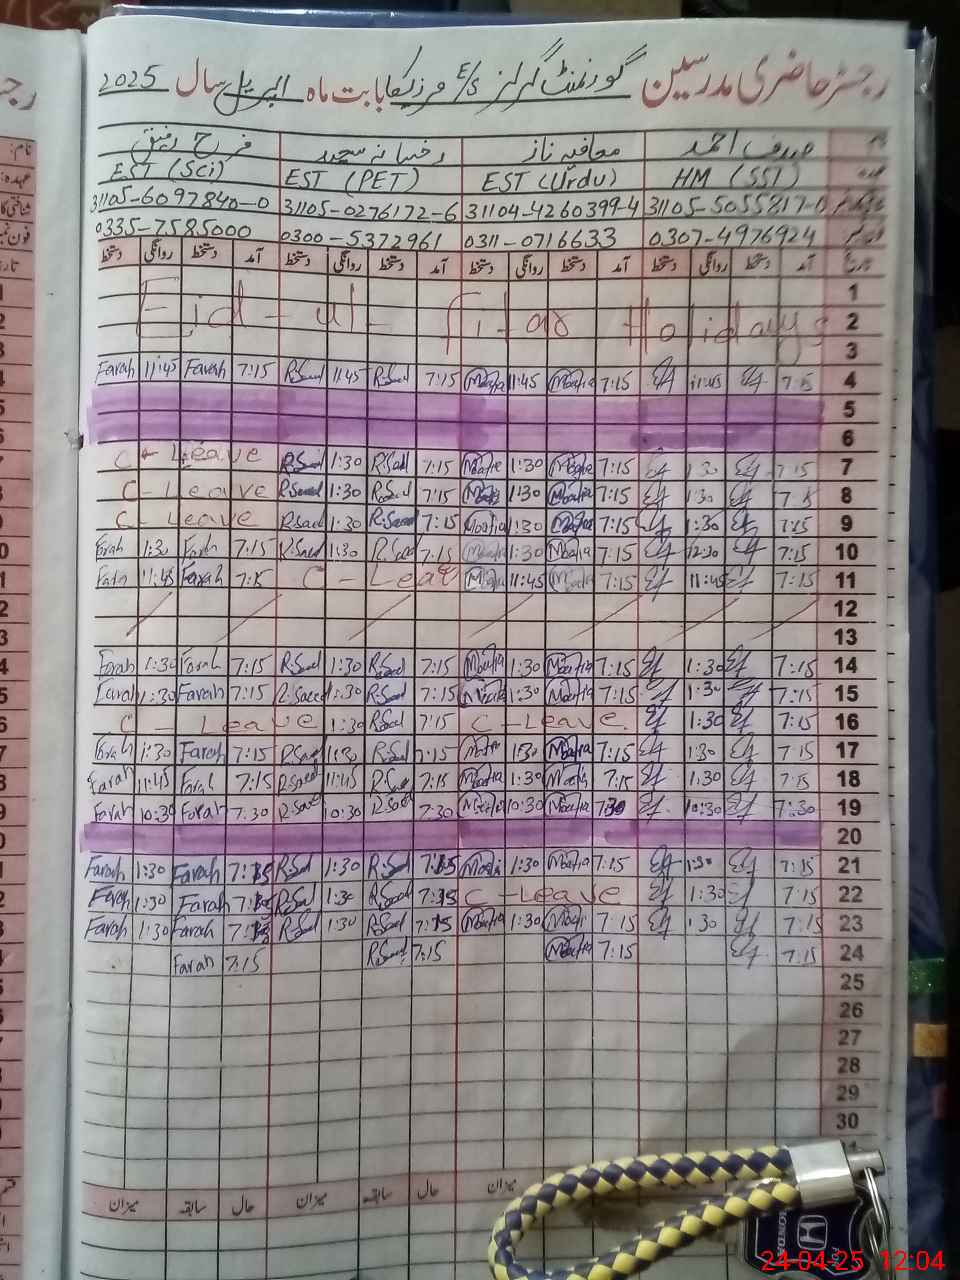 رجسٹر حاضری مدرسین گورنمنٹ گرلز E/S بابت ماہ اپریل سال 2025
معافیہ ناز رخسانہ سعید فرح رفیق
عہدہ HM (SST) EST (Urdu) EST (PET) EST (Sci)
31105-5055817-0 31104-4260399-4 31105-0276172-6 31105-6097840-0
0307-4976924 0311-0716633 0300-5372961 0335-7585000
تاریخ آمد دستخط روانگی دستخط آمد دستخط روانگی دستخط آمد دستخط روانگی دستخط آمد دستخط روانگی دستخط
1
Eid - ul - fitar Holidays 2
3
Farah 11:45 Farah 7:15 R.Saeed 11:45 R.Saeed 7:15 Moafia 11:45 Moafia 7:15 11:45 7:15 4
5
6
C - Leave R.Saeed 1:30 R.Saeed 7:15 Moafia 1:30 Moafia 7:15 1:30 7:15 7
C - Leave R.Saeed 1:30 R.Saeed 7:15 Moafia 1:30 Moafia 7:15 1:30 7:15 8
C - Leave R.Saeed 1:30 R.Saeed 7:15 Moafia 1:30 Moafia 7:15 1:30 7:15 9
Farah 1:30 Farah 7:15 R.Saeed 1:30 R.Saeed 7:15 Moafia 1:30 Moafia 7:15 12:30 7:15 10
Farah 11:45 Farah 7:15 C - Leave Moafia 11:45 Moafia 7:15 11:45 7:15 11
12
13
Farah 1:30 Farah 7:15 R.Saeed 1:30 R.Saeed 7:15 Moafia 1:30 Moafia 7:15 1:30 7:15 14
Farah 1:30 Farah 7:15 R.Saeed 1:30 R.Saeed 7:15 Moafia 1:30 Moafia 7:15 1:30 7:15 15
C - Leave 1:30 R.Saeed 7:15 C - Leave. 1:30 7:15 16
Farah 1:30 Farah 7:15 R.Saeed 1:30 R.Saeed 7:15 Moafia 1:30 Moafia 7:15 1:30 7:15 17
Farah 11:45 Farah 7:15 R.Saeed 11:45 R.Saeed 7:15 Moafia 1:30 Moafia 7:15 1:30 7:15 18
Farah 10:30 Farah 7:30 R.Saeed 10:30 R.Saeed 7:30 Moafia 10:30 Moafia 7:30 10:30 7:30 19
20
Farah 1:30 Farah 7:15 R.Saeed 1:30 R.Saeed 7:15 Moafia 1:30 Moafia 7:15 1:30 7:15 21
Farah 1:30 Farah 7:15 R.Saeed 1:30 R.Saeed 7:15 C - Leave 1:30 7:15 22
Farah 1:30 Farah 7:15 R.Saeed 1:30 R.Saeed 7:15 Moafia 1:30 Moafia 7:15 1:30 7:15 23
Farah 7:15 R.Saeed 7:15 Moafia 7:15 7:15 24
25
26
27
28
29
30
31
میزان حال سابقہ میزان حال سابقہ میزان
HONDA
24-04-25 12:04